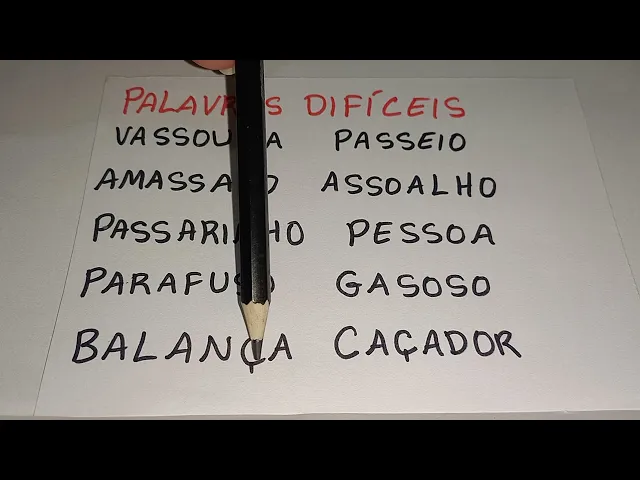 PALAVRAS DIFÍCEIS
VASSOURA PASSEIO
AMASSADO ASSOALHO
PASSARINHO PESSOA
PARAFUSO GASOSO
BALANÇA CAÇADOR